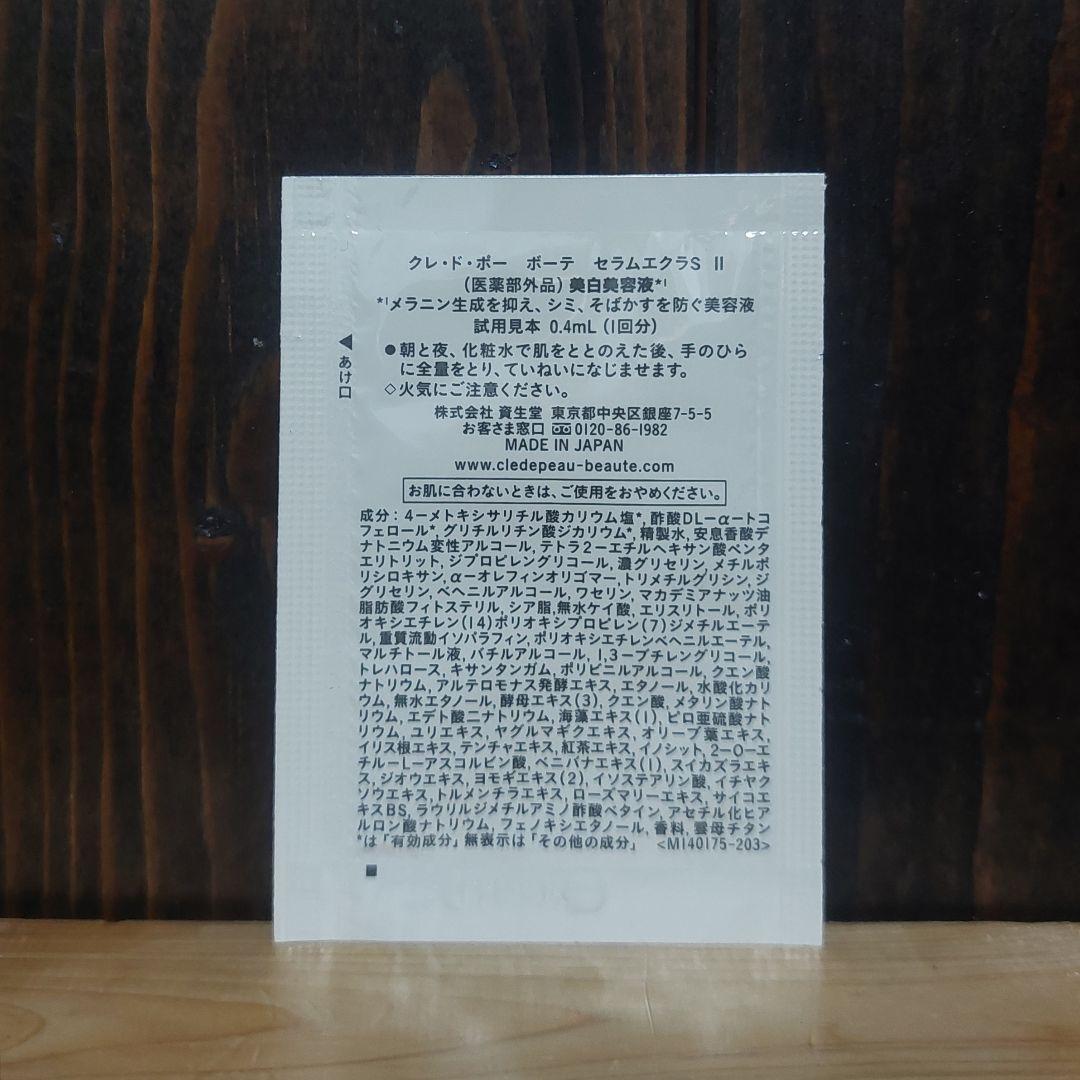 クレ・ド・ポー ボーテ セラムエクラS II
(医薬部外品) 美白美容液*1
*1メラニン生成を抑え、シミ、そばかすを防ぐ美容液
試用見本 0.4mL (1回分)
◀あけ口
●朝と夜、化粧水で肌をととのえた後、手のひら
に全量をとり、ていねいになじませます。
◇火気にご注意ください。
株式会社 資生堂 東京都中央区銀座7-5-5
お客さま窓口 0120-86-1982
MADE IN JAPAN
www.cledepeau-beaute.com
お肌に合わないときは、ご使用をおやめください。
成分：4－メトキシサリチル酸カリウム塩*, 酢酸DL－α－トコ
フェロール*, グリチルリチン酸ジカリウム*, 精製水, 安息香酸デ
ナトニウム変性アルコール, テトラ2－エチルヘキサン酸ペンタ
エリトリット, ジプロピレングリコール, 濃グリセリン, メチルポ
リシロキサン, α－オレフィンオリゴマー, トリメチルグリシン, ジ
グリセリン, ベヘニルアルコール, ワセリン, マカデミアナッツ油
脂肪酸フィトステリル, シア脂, 無水ケイ酸, エリスリトール, ポリ
オキシエチレン(14)ポリオキシプロピレン(7)ジメチルエーテ
ル, 重質流動イソパラフィン, ポリオキシエチレンベヘニルエーテル,
マルチトール液, バチルアルコール, 1,3－ブチレングリコール,
トレハロース, キサンタンガム, ポリビニルアルコール, クエン酸
ナトリウム, アルテロモナス発酵エキス, エタノール, 水酸化カリ
ウム, 無水エタノール, 酵母エキス(3), クエン酸, メタリン酸ナト
リウム, エデト酸二ナトリウム, 海藻エキス(1), ピロ亜硫酸ナト
リウム, ユリエキス, ヤグルマギクエキス, オリーブ葉エキス,
イリス根エキス, テンチャエキス, 紅茶エキス, イノシット, 2－O－エ
チル－L－アスコルビン酸, ベニバナエキス(1), スイカズラエキ
ス, ジオウエキス, ヨモギエキス(2), イソステアリン酸, イチヤク
ソウエキス, トルメンチラエキス, ローズマリーエキス, サイコエ
キスBS, ラウリルジメチルアミノ酢酸ベタイン, アセチル化ヒア
ルロン酸ナトリウム, フェノキシエタノール, 香料, 雲母チタン
*は「有効成分」無表示は「その他の成分」 <M140175-203>